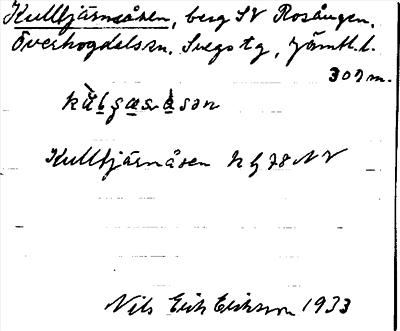 Kulltjärnsåsen, berg SV Rosången,
Överhogdals sn. Svegs tg, Jämtl. l.
307 m.
Kulltjärnåsen h g 78 NV
Nils Erik Eriksson 1933